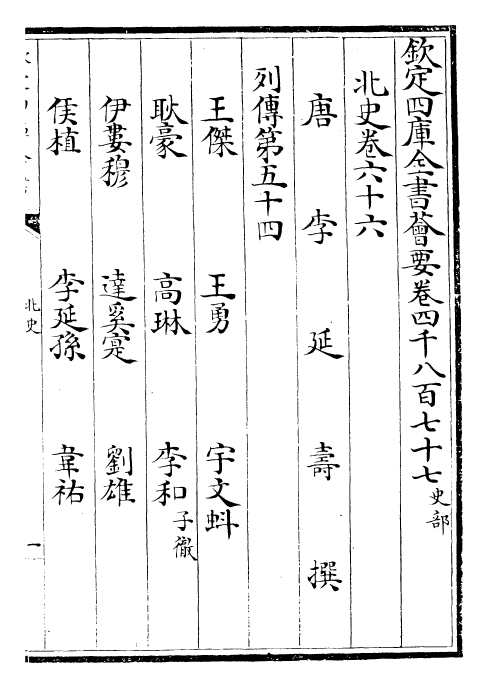 欽定四庫全書薈要卷四千八百七十七史部
北史卷六十六
唐李延壽撰
列傳第五十四
王傑 王勇 宇文虬
耿豪 高琳 李和子徹
伊婁穆 達奚寔 劉雄
侯植 李延孫 韋祐
北史
一